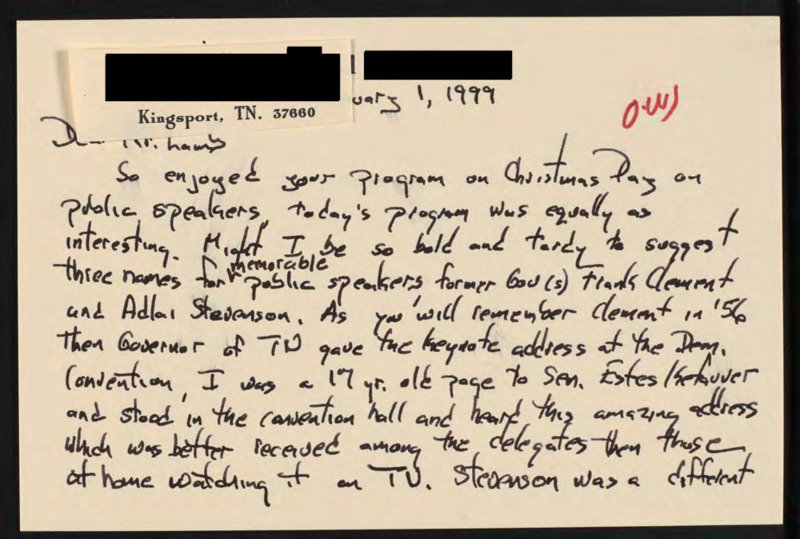 uary 1, 1999
Kingsport, TN. 37660
Dear Mr. Lamb
So enjoyed your program on Christmas Day on
public speakers, today's program was equally as
interesting. Might I be so bold and tardy to suggest
three names for memorable public speakers former Gov(s) Frank Clement
and Adlai Stevenson. As you will remember Clement in '56
then Governor of TN gave the keynote address at the Dem.
Convention, I was a 17 yr. old page to Sen. Estes Kefauver
and stood in the convention hall and heard this amazing address
which was better received among the delegates then those
at home watching it on TV. Stevenson was a different